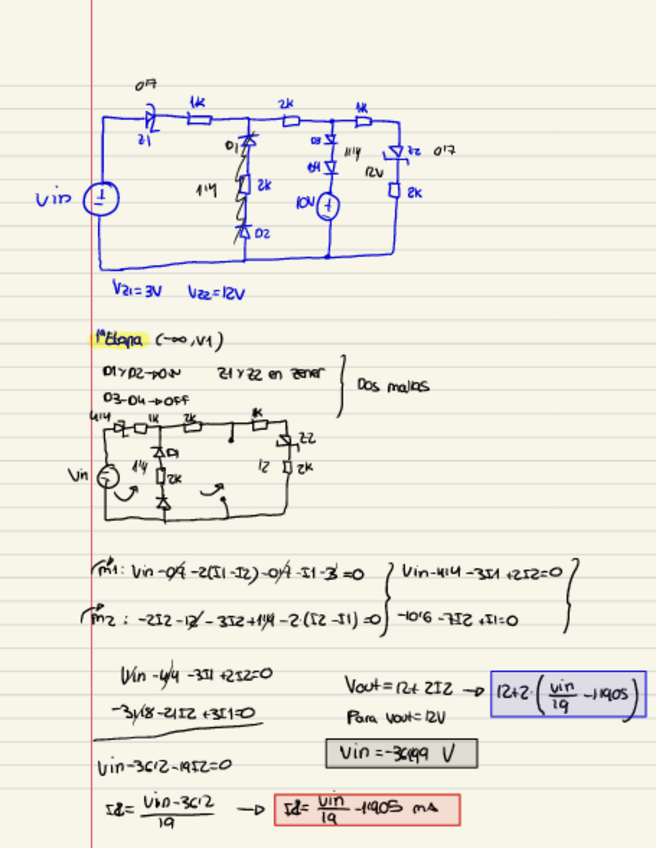 0'7
1K 2K 1K
Z1 D1 D3 1'4 Z2 0'7
1'4 2K D4 12V
Vin 10V 2K
D2
VZ1=3V VZ2=12V
1ªEtapa (-∞,V1)
D1 y D2→ON Z1 y Z2 en zener
Dos mallas
D3-D4→OFF
4'4 1K 2K 1K
D1 Z2
Vin 1'4 2K 12 2K
m1: Vin-0'7-2(I1-I2)-0'7-I1-3=0 Vin-4'4-3I1+2I2=0
m2: -2I2-12-3I2+1'4-2·(I2-I1)=0 -10'6-7I2+I1=0
Vin-4'4-3I1+2I2=0 Vout=12+2I2 → 12+2·(Vin/19-1'1905)
-31'8-21I2+3I1=0 Para Vout=12V
Vin-36'2-19I2=0 Vin=-36'199 V
I2=Vin-36'2/19 → I2=Vin/19-1'1905 mA